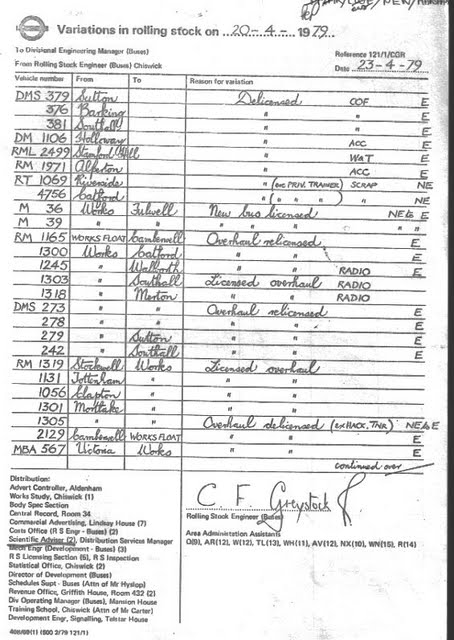 Variations in rolling stock on 20-4- 1979.
To Divisional Engineering Manager (Buses)
Reference 121/1/CGR
From Rolling Stock Engineer (Buses) Chiswick
Date 23-4-79
Vehicle number From To Reason for variation
DMS 379 Sutton Delicensed COF E
376 Barking " " E
381 Southall " " E
DM 1106 Holloway " ACC E
RML 2499 Stamford Hill " W&T E
RM 1971 Alperton " ACC E
RT 1069 Riverside " (ex PRIV. TRAINER) SCRAP NE
4756 Catford " ( " " ) " NE
M 36 Works Fulwell New bus licensed NE&E
M 39 " " " " " " "
RM 1165 WORKS FLOAT Camberwell Overhaul relicensed E
1300 Works Catford " " E
1245 " Walworth " " RADIO E
1303 " Southall Licensed overhaul RADIO
1318 " Merton " " RADIO
DMS 273 " " Overhaul relicensed E
278 " " " " E
279 " Sutton " " E
242 " Southall " " E
RM 1319 Stockwell Works Licensed overhaul
1131 Tottenham " " "
1056 Clapton " " "
1301 Mortlake " " "
1305 " " Overhaul delicensed (ex HACK. TNR) NE&E
2129 Camberwell WORKS FLOAT " " E
MBA 567 Victoria Works " " E
continued over
Distribution:
Advert Controller, Aldenham
Works Study, Chiswick (1)
Body Spec Section
Central Record, Room 34
Commercial Advertising, Lindsay House (7)
Costs Office (R S Engr - Buses) (2)
Scientific Adviser (2), Distribution Services Manager
Mech Engr (Development - Buses) (3)
R S Licensing Section (5), R S Inspection
Statistical Office, Chiswick (2)
Director of Development (Buses)
Schedules Supt - Buses (Attn of Mr Hyslop)
Revenue Office, Griffith House, Room 432 (2)
Div Operating Manager (Buses), Mansion House
Training School, Chiswick (Attn of Mr Carter)
Development Engr, Signalling, Telstar House
C F Greystock
Rolling Stock Engineer (Buses)
Area Administration Assistants
O(9), AR(12), W(12), TL(13), WH(11), AV(12), NX(10), WN(15), R(14)
408/69(1) (500 2/79 121/1)